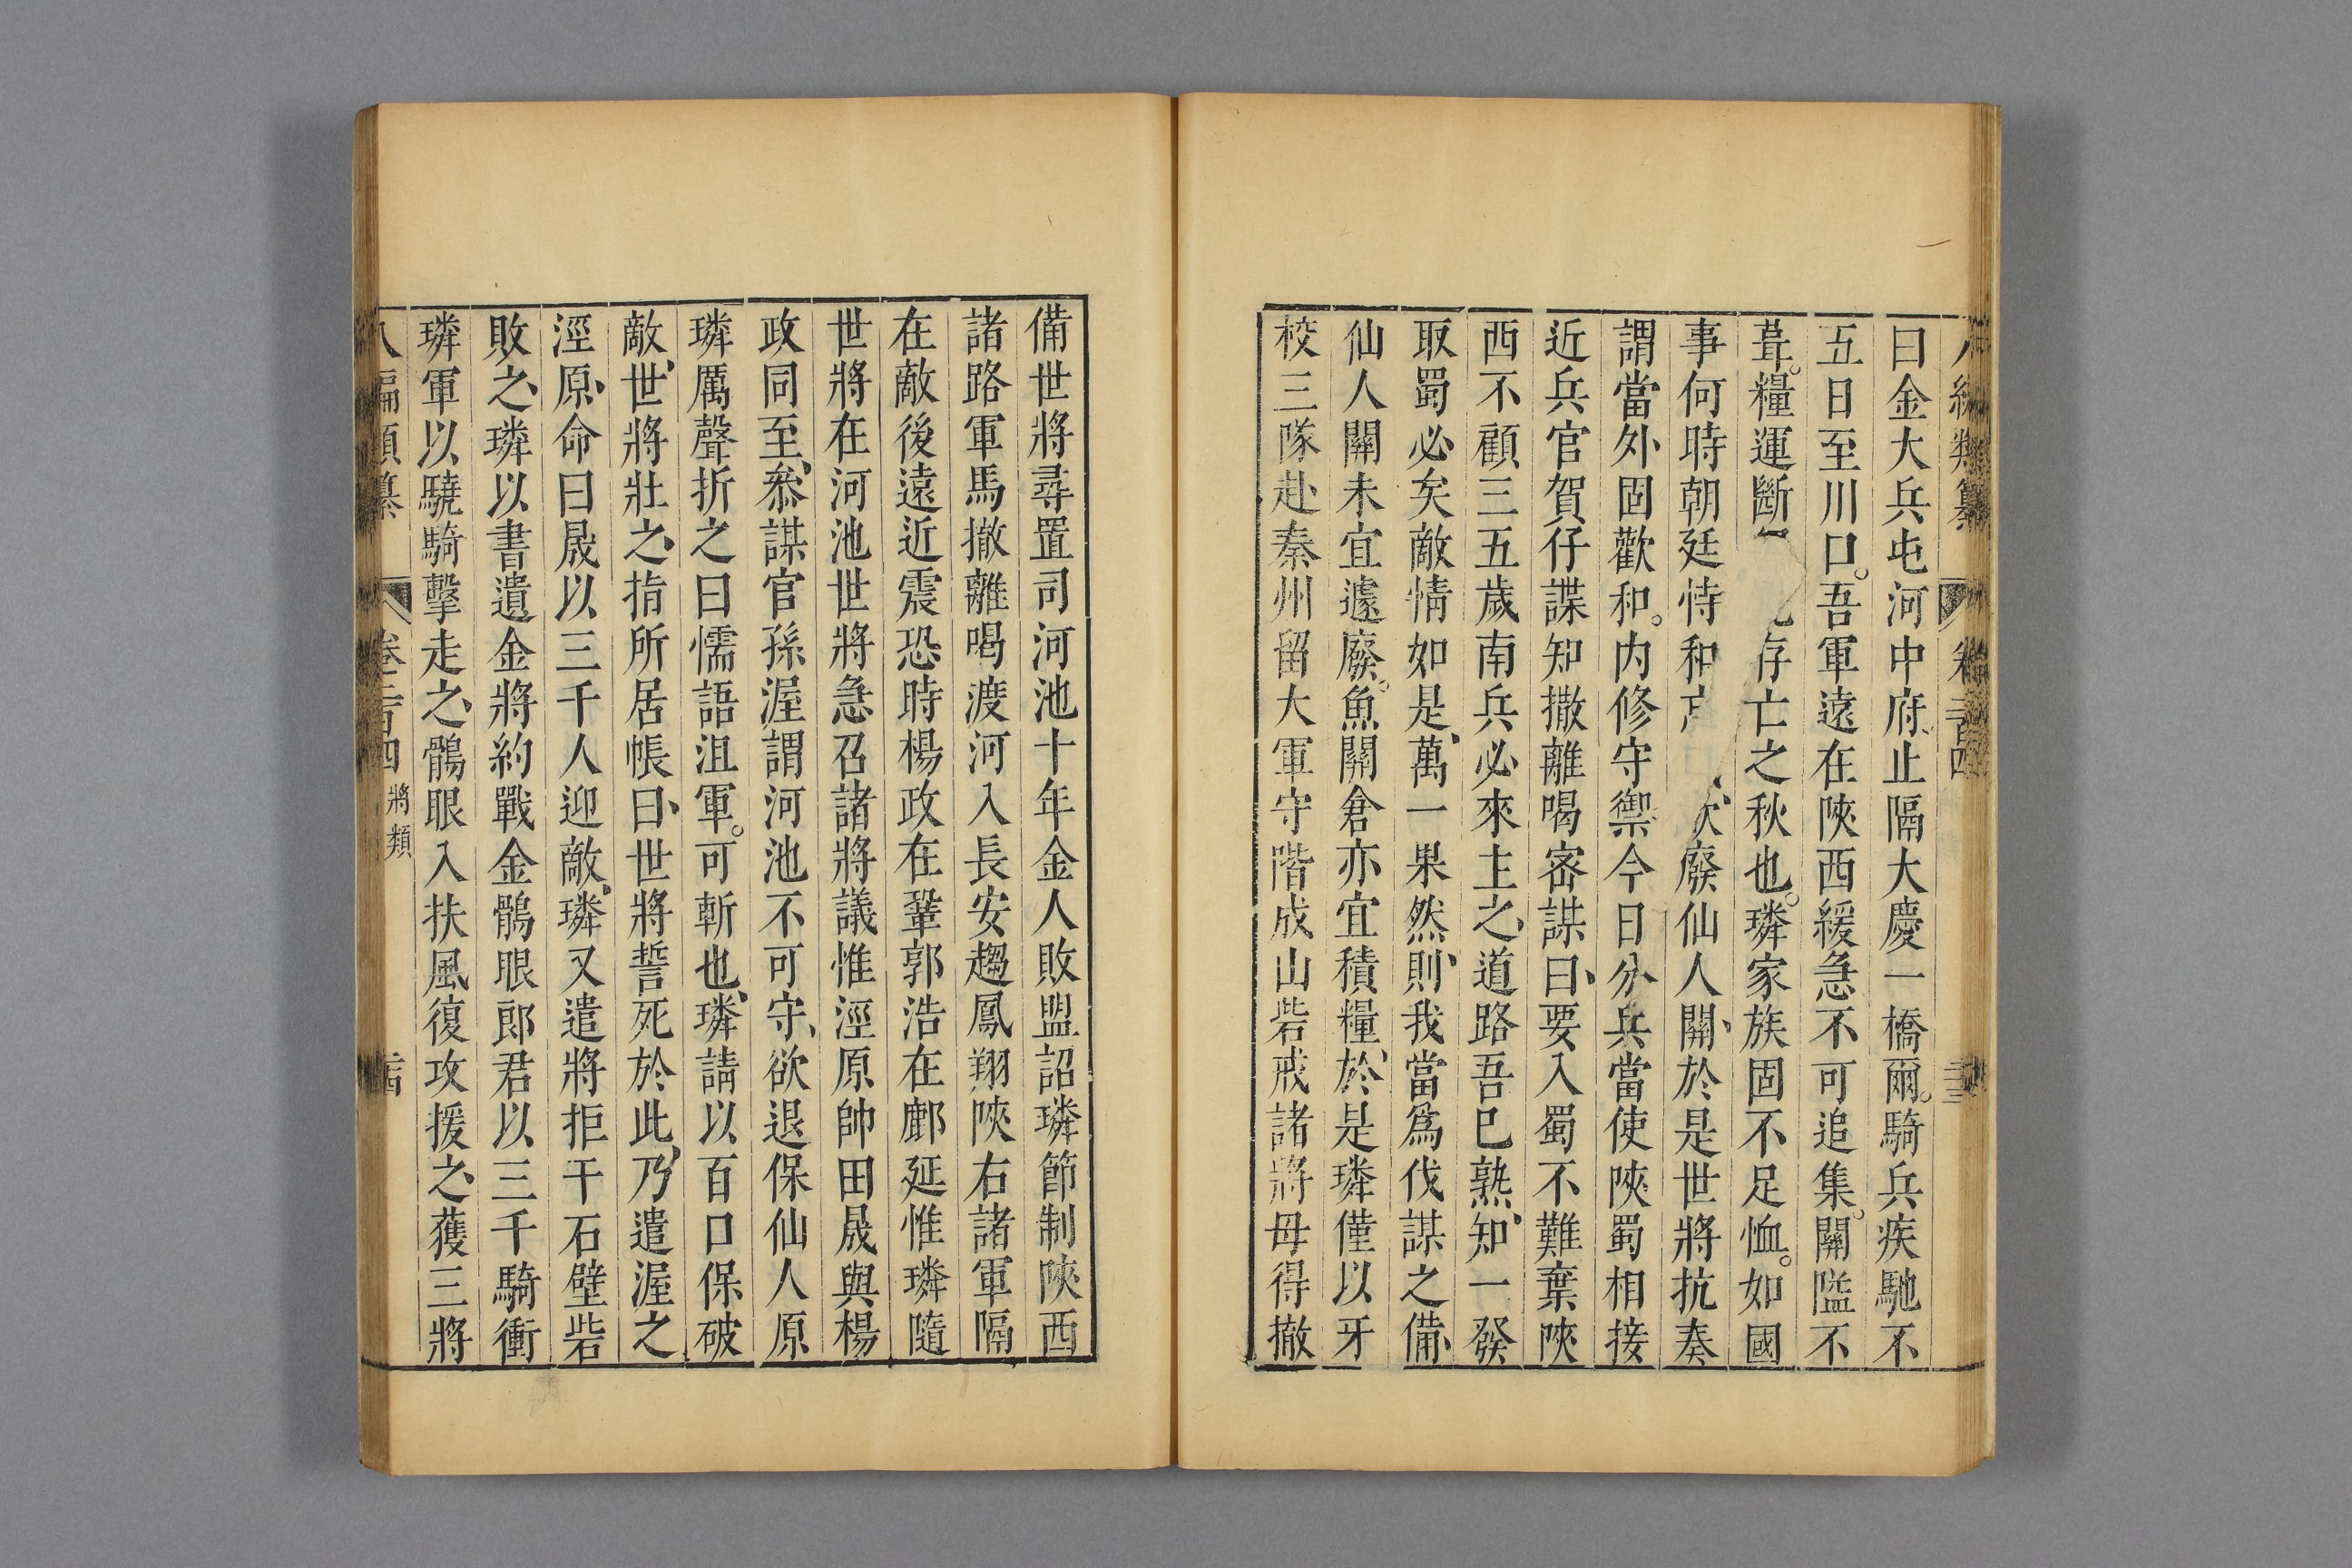 曰金大兵屯河中府、止隔大慶一橋爾。騎兵疾馳不
五日至川口。吾軍遠在陝西緩急不可追集。關隘不
葺。糧運斷存亡之秋也。璘家族固不足恤。如國
事何時朝廷恃和廢仙人關、於是世將抗奏
謂當外固歡和。内修守禦今日分兵當使陝蜀相接
近兵官賀仔諜知撒離喝密謀曰、要入蜀不難棄陝
西不顧三五歲南兵必來主之、道路吾已熟、知一發
取蜀必矣敵情如是、萬一果然、則我當爲伐謀之備、
仙人關未宜遽廢。魚關倉亦宜積糧、於是璘僅以牙
校三隊赴秦州留大軍守階成山砦戒諸將毋得撤
備世將尋置司河池十年金人敗盟詔璘節制陝西
諸路軍馬撤離喝渡河入長安趨鳳翔陝右諸軍隔
在敵後遠近震恐時楊政在鞏郭浩在鄜延惟璘隨
世將在河池世將急召諸將議惟涇原帥田晟與楊
政同至、叅謀官孫渥謂河池不可守、欲退保仙人原
璘厲聲折之曰懦語沮軍。可斬也、璘請以百口保破
敵、世將壯之、指所居帳曰、世將誓死於此、乃遣渥之
涇原、命曰晟以三千人迎敵、璘又遣將拒于石壁砦
敗之、璘以書遺金將約戰金鶻眼郎君以三千騎衝
璘軍以驍騎擊走之、鶻眼入扶風復攻援之、獲三將
將類